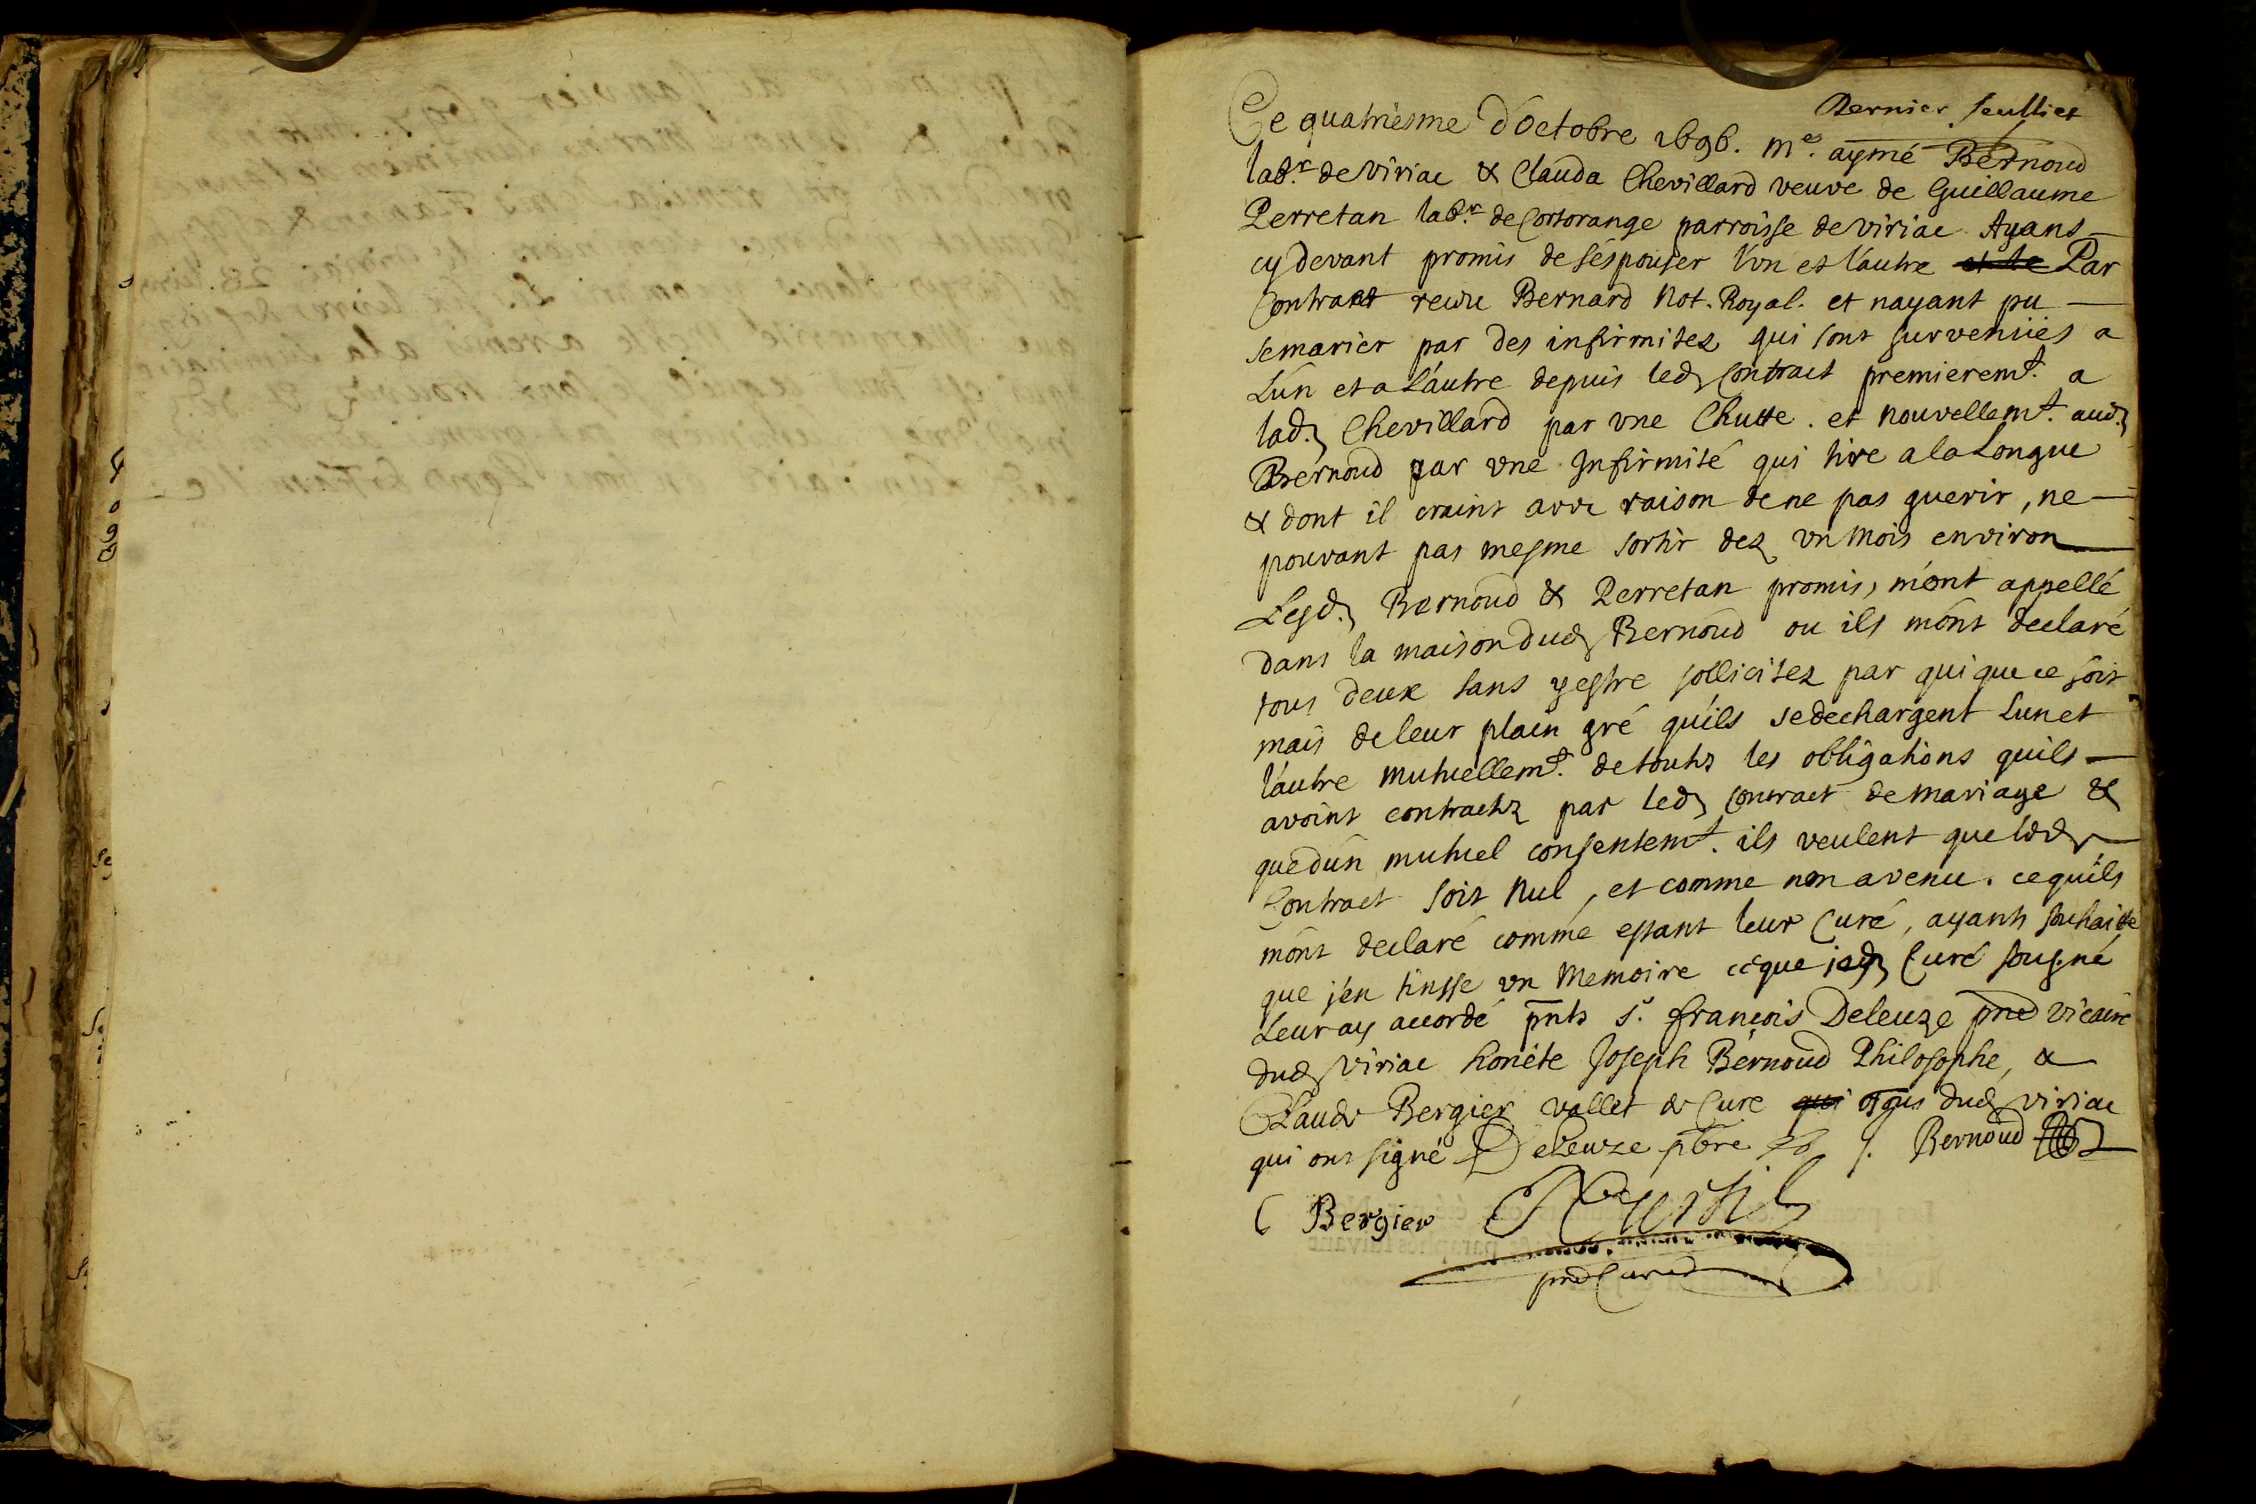 Dernier feulliet
Ce quatriesme d'Octobre 1696. me. aymé Bernoud
labr. de viriac & Clauda Chevillard veuve de Guillaume
Perretan labr. de Cortorange parroisse de viriac Ayans
cy devant promis de s'espouser l'vn et l'autre et le Par
Contract recu Bernard Not. Royal. et nayant pu
se marier par des infirmitez qui sont survenuës a
L'un et a L'autre depuis led. Contract premieremt. a
lad. Chevillard par vne Chutte. et nouvellemt. aud.
Bernoud par vne Infirmité qui tire a la Longue
& dont il craint avec raison de ne pas guerir, ne
pouvant pas mesme sortir dez vn Mois environ
Lesd. Bernoud & Perretan promis, m'ont appellé
dans la maison dud. Bernoud ou ils m'ont declaré
tous deux sans y estre sollicitez par qui que ce soit
mais de leur plain gré qu'ils se dechargent Lun et
l'autre mutuellemt. de toutes les obligations quils
avoint contractez par led. Contract de mariage &
que d'un mutuel consentemt. ils veulent que led.
Contract soit Nul, et comme non avenu. ce qu'ils
m'ont declaré comme estant leur Curé, ayants souhaitte
que j'en tinsse vn Memoire ce que Curé sousgné
Leur ay accordé pnts sr. françois Deleuze vicaire
dud. viriac honéte Joseph Bernoud Philosophe, &
Claude Bergier vallet de Cure qui dud. viriac
qui ont signé Deleuze pbre J. Bernoud
C Bergier
Curé